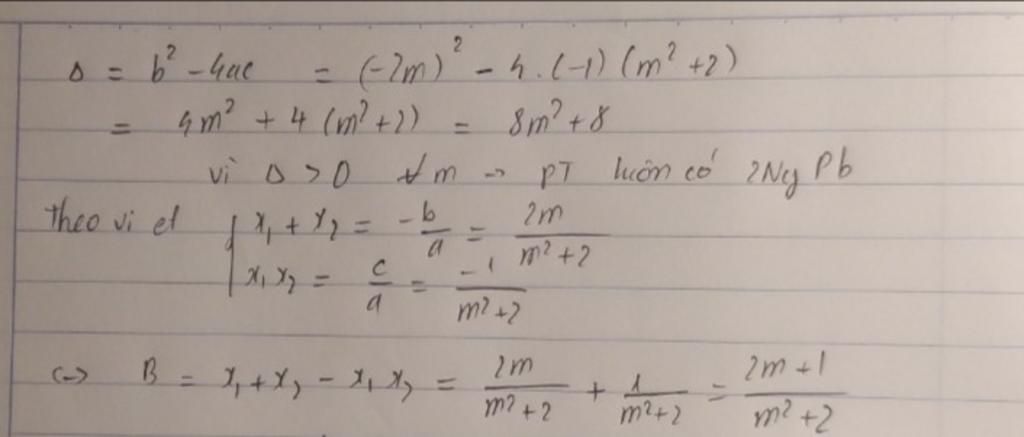 Δ = b² - 4ac = (-2m)² - 4.(-1)(m²+2)
= 4m² + 4(m²+2) = 8m²+8
vì Δ > 0 ∀m → PT luôn có 2Ng Pb
Theo vi et { x₁ + x₂ = -b/a = 2m/(m²+2)
x₁x₂ = c/a = -1/(m²+2)
<-> B = x₁+x₂ - x₁x₂ = 2m/(m²+2) + 1/(m²+2) = (2m+1)/(m²+2)